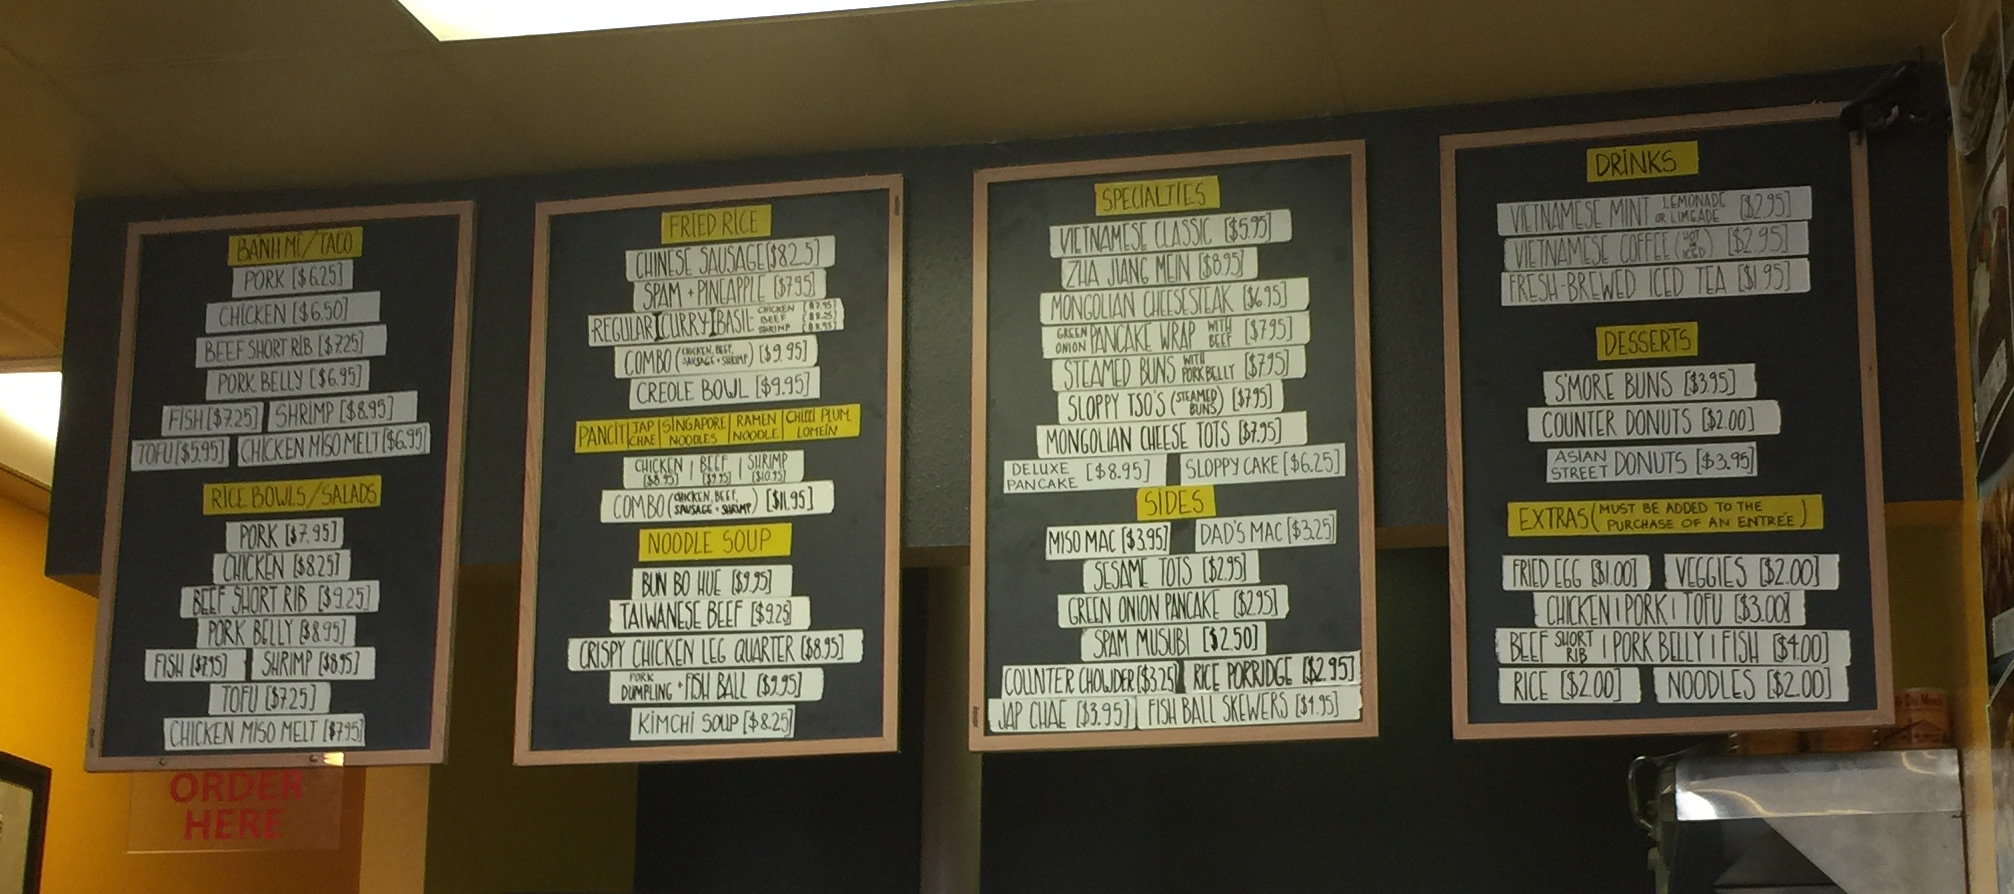 BANH MI/TACO
PORK [$6.25]
CHICKEN [$6.50]
BEEF SHORT RIB [$7.25]
PORK BELLY [$6.95]
FISH [$7.25] SHRIMP [$8.95]
TOFU [$5.95] CHICKEN MISO MELT [$6.95]
RICE BOWLS/SALADS
PORK [$7.95]
CHICKEN [$8.25]
BEEF SHORT RIB [$9.25]
PORK BELLY [$8.95]
FISH [$7.95] SHRIMP [$8.95]
TOFU [$7.25]
CHICKEN MISO MELT [$7.95]
ORDER
HERE
FRIED RICE
CHINESE SAUSAGE [$8.25]
SPAM + PINEAPPLE [$7.95]
REGULAR | CURRY | BASIL - CHICKEN [$7.95] BEEF [$8.25] SHRIMP [$8.95]
COMBO (CHICKEN, BEEF, SAUSAGE + SHRIMP) [$9.95]
CREOLE BOWL [$9.95]
PANCIT | JAP CHAE | SINGAPORE NOODLES | RAMEN NOODLE | CHILI PLUM LOMEIN
CHICKEN [$8.95] | BEEF [$9.95] | SHRIMP [$10.95]
COMBO (CHICKEN, BEEF, SAUSAGE + SHRIMP) [$11.95]
NOODLE SOUP
BUN BO HUE [$9.95]
TAIWANESE BEEF [$9.25]
CRISPY CHICKEN LEG QUARTER [$8.95]
PORK DUMPLING + FISH BALL [$9.95]
KIMCHI SOUP [$8.25]
SPECIALTIES
VIETNAMESE CLASSIC [$5.95]
ZHA JIANG MEIN [$8.95]
MONGOLIAN CHEESESTEAK [$6.95]
GREEN ONION PANCAKE WRAP WITH BEEF [$7.95]
STEAMED BUNS WITH PORK BELLY [$7.95]
SLOPPY TSO'S (STEAMED BUNS) [$7.95]
MONGOLIAN CHEESE TOTS [$7.95]
DELUXE PANCAKE [$8.95] SLOPPY CAKE [$6.25]
SIDES
MISO MAC [$3.95] DAD'S MAC [$3.25]
SESAME TOTS [$2.95]
GREEN ONION PANCAKE [$2.95]
SPAM MUSUBI [$2.50]
COUNTER CHOWDER [$3.25] RICE PORRIDGE [$2.95]
JAP CHAE [$3.95] FISH BALL SKEWERS [$4.95]
DRINKS
VIETNAMESE MINT LEMONADE OR LIMEADE [$2.95]
VIETNAMESE COFFEE (HOT OR ICED) [$2.95]
FRESH-BREWED ICED TEA [$1.95]
DESSERTS
S'MORE BUNS [$3.95]
COUNTER DONUTS [$2.00]
ASIAN STREET DONUTS [$3.95]
EXTRAS (MUST BE ADDED TO THE PURCHASE OF AN ENTREE)
FRIED EGG [$1.00] VEGGIES [$2.00]
CHICKEN | PORK | TOFU [$3.00]
BEEF SHORT RIB | PORK BELLY | FISH [$4.00]
RICE [$2.00] NOODLES [$2.00]